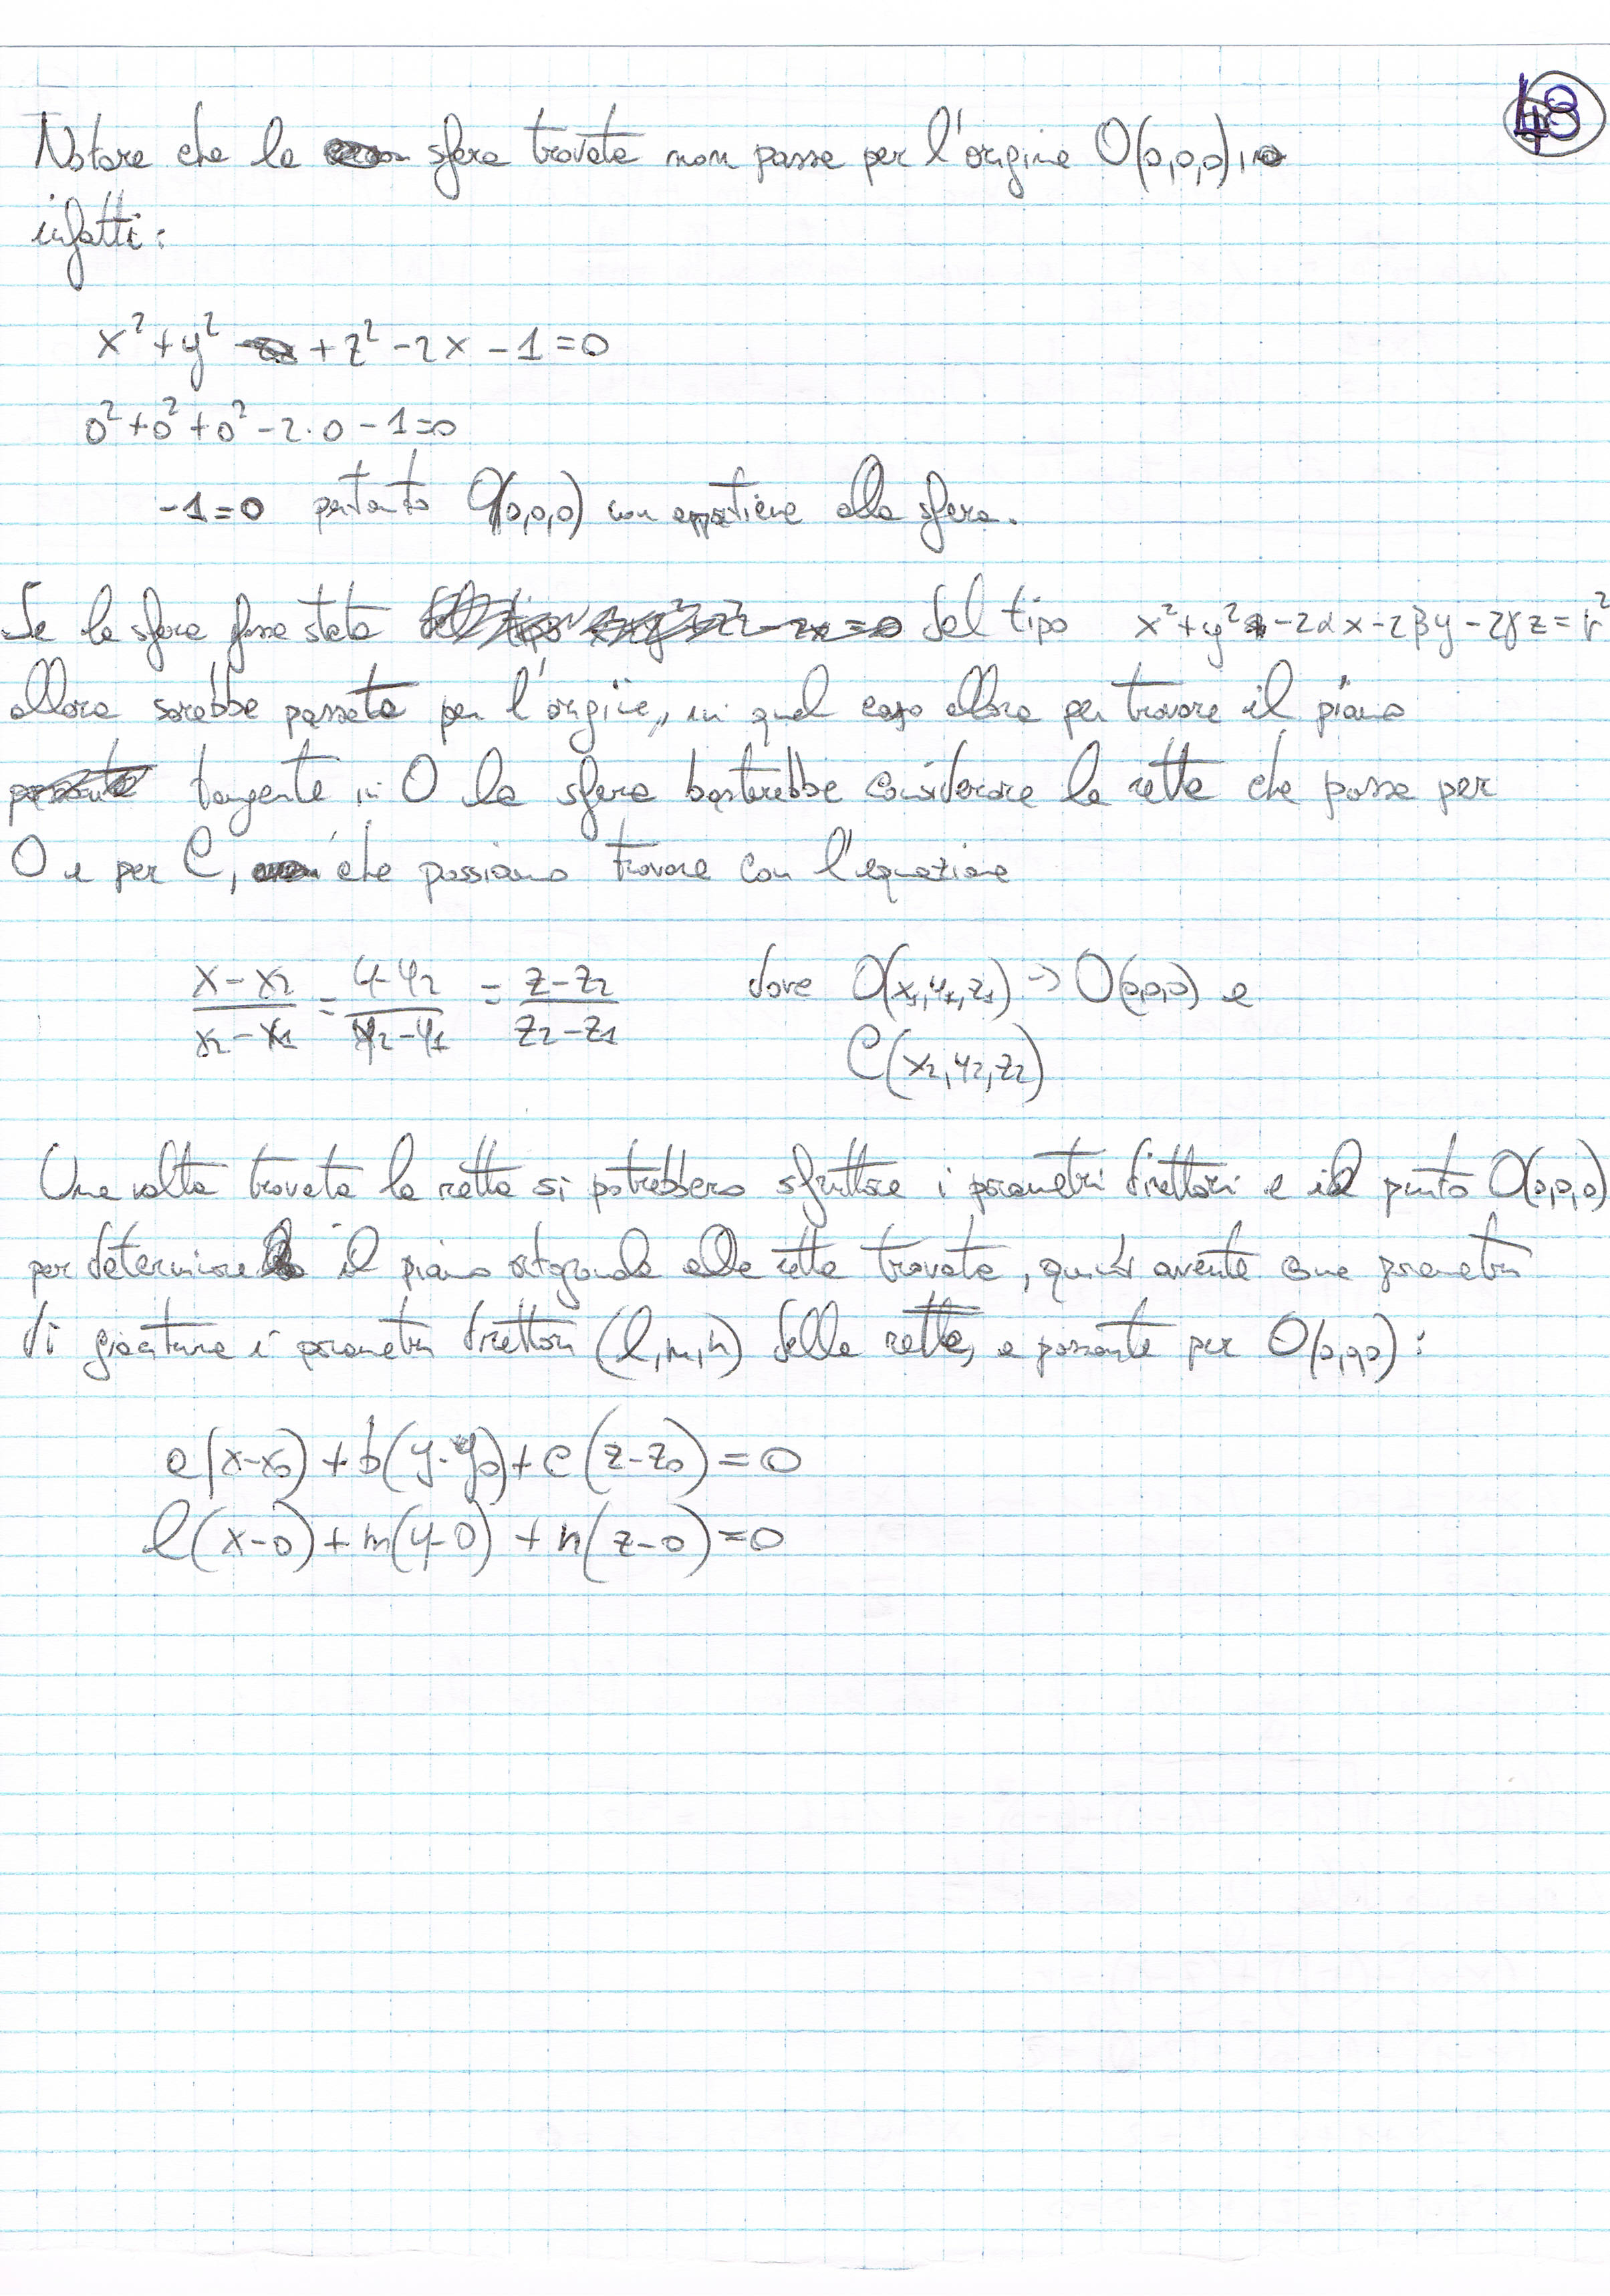 48
Notare che la sfera trovata non passa per l'origine O(0,0,0),
infatti:
x² + y² + z² - 2x - 1 = 0
0² + 0² + 0² - 2·0 - 1 = 0
-1 = 0 pertanto O(0,0,0) non appartiene alla sfera.
Se la sfera fosse stata del tipo x² + y² - 2αx - 2βy - 2γz = r²
allora sarebbe passata per l'origine, in quel caso allora per trovare il piano
tangente in O la sfera basterebbe considerare la retta che passa per
O e per C, che possiamo trovare con l'equazione
(x - x₂)/(x₂ - x₁) = (y - y₂)/(y₂ - y₁) = (z - z₂)/(z₂ - z₁) dove O(x₁,y₁,z₁) → O(0,0,0) e
C(x₂,y₂,z₂)
Una volta trovata la retta si potrebbero sfruttare i parametri direttori e il punto O(0,0,0)
per determinare il piano ortogonale alla retta trovata, quindi avente come parametri
di giacitura i parametri direttori (l,m,n) della retta, e passante per O(0,0,0):
a(x - x₀) + b(y - y₀) + c(z - z₀) = 0
l(x - 0) + m(y - 0) + n(z - 0) = 0